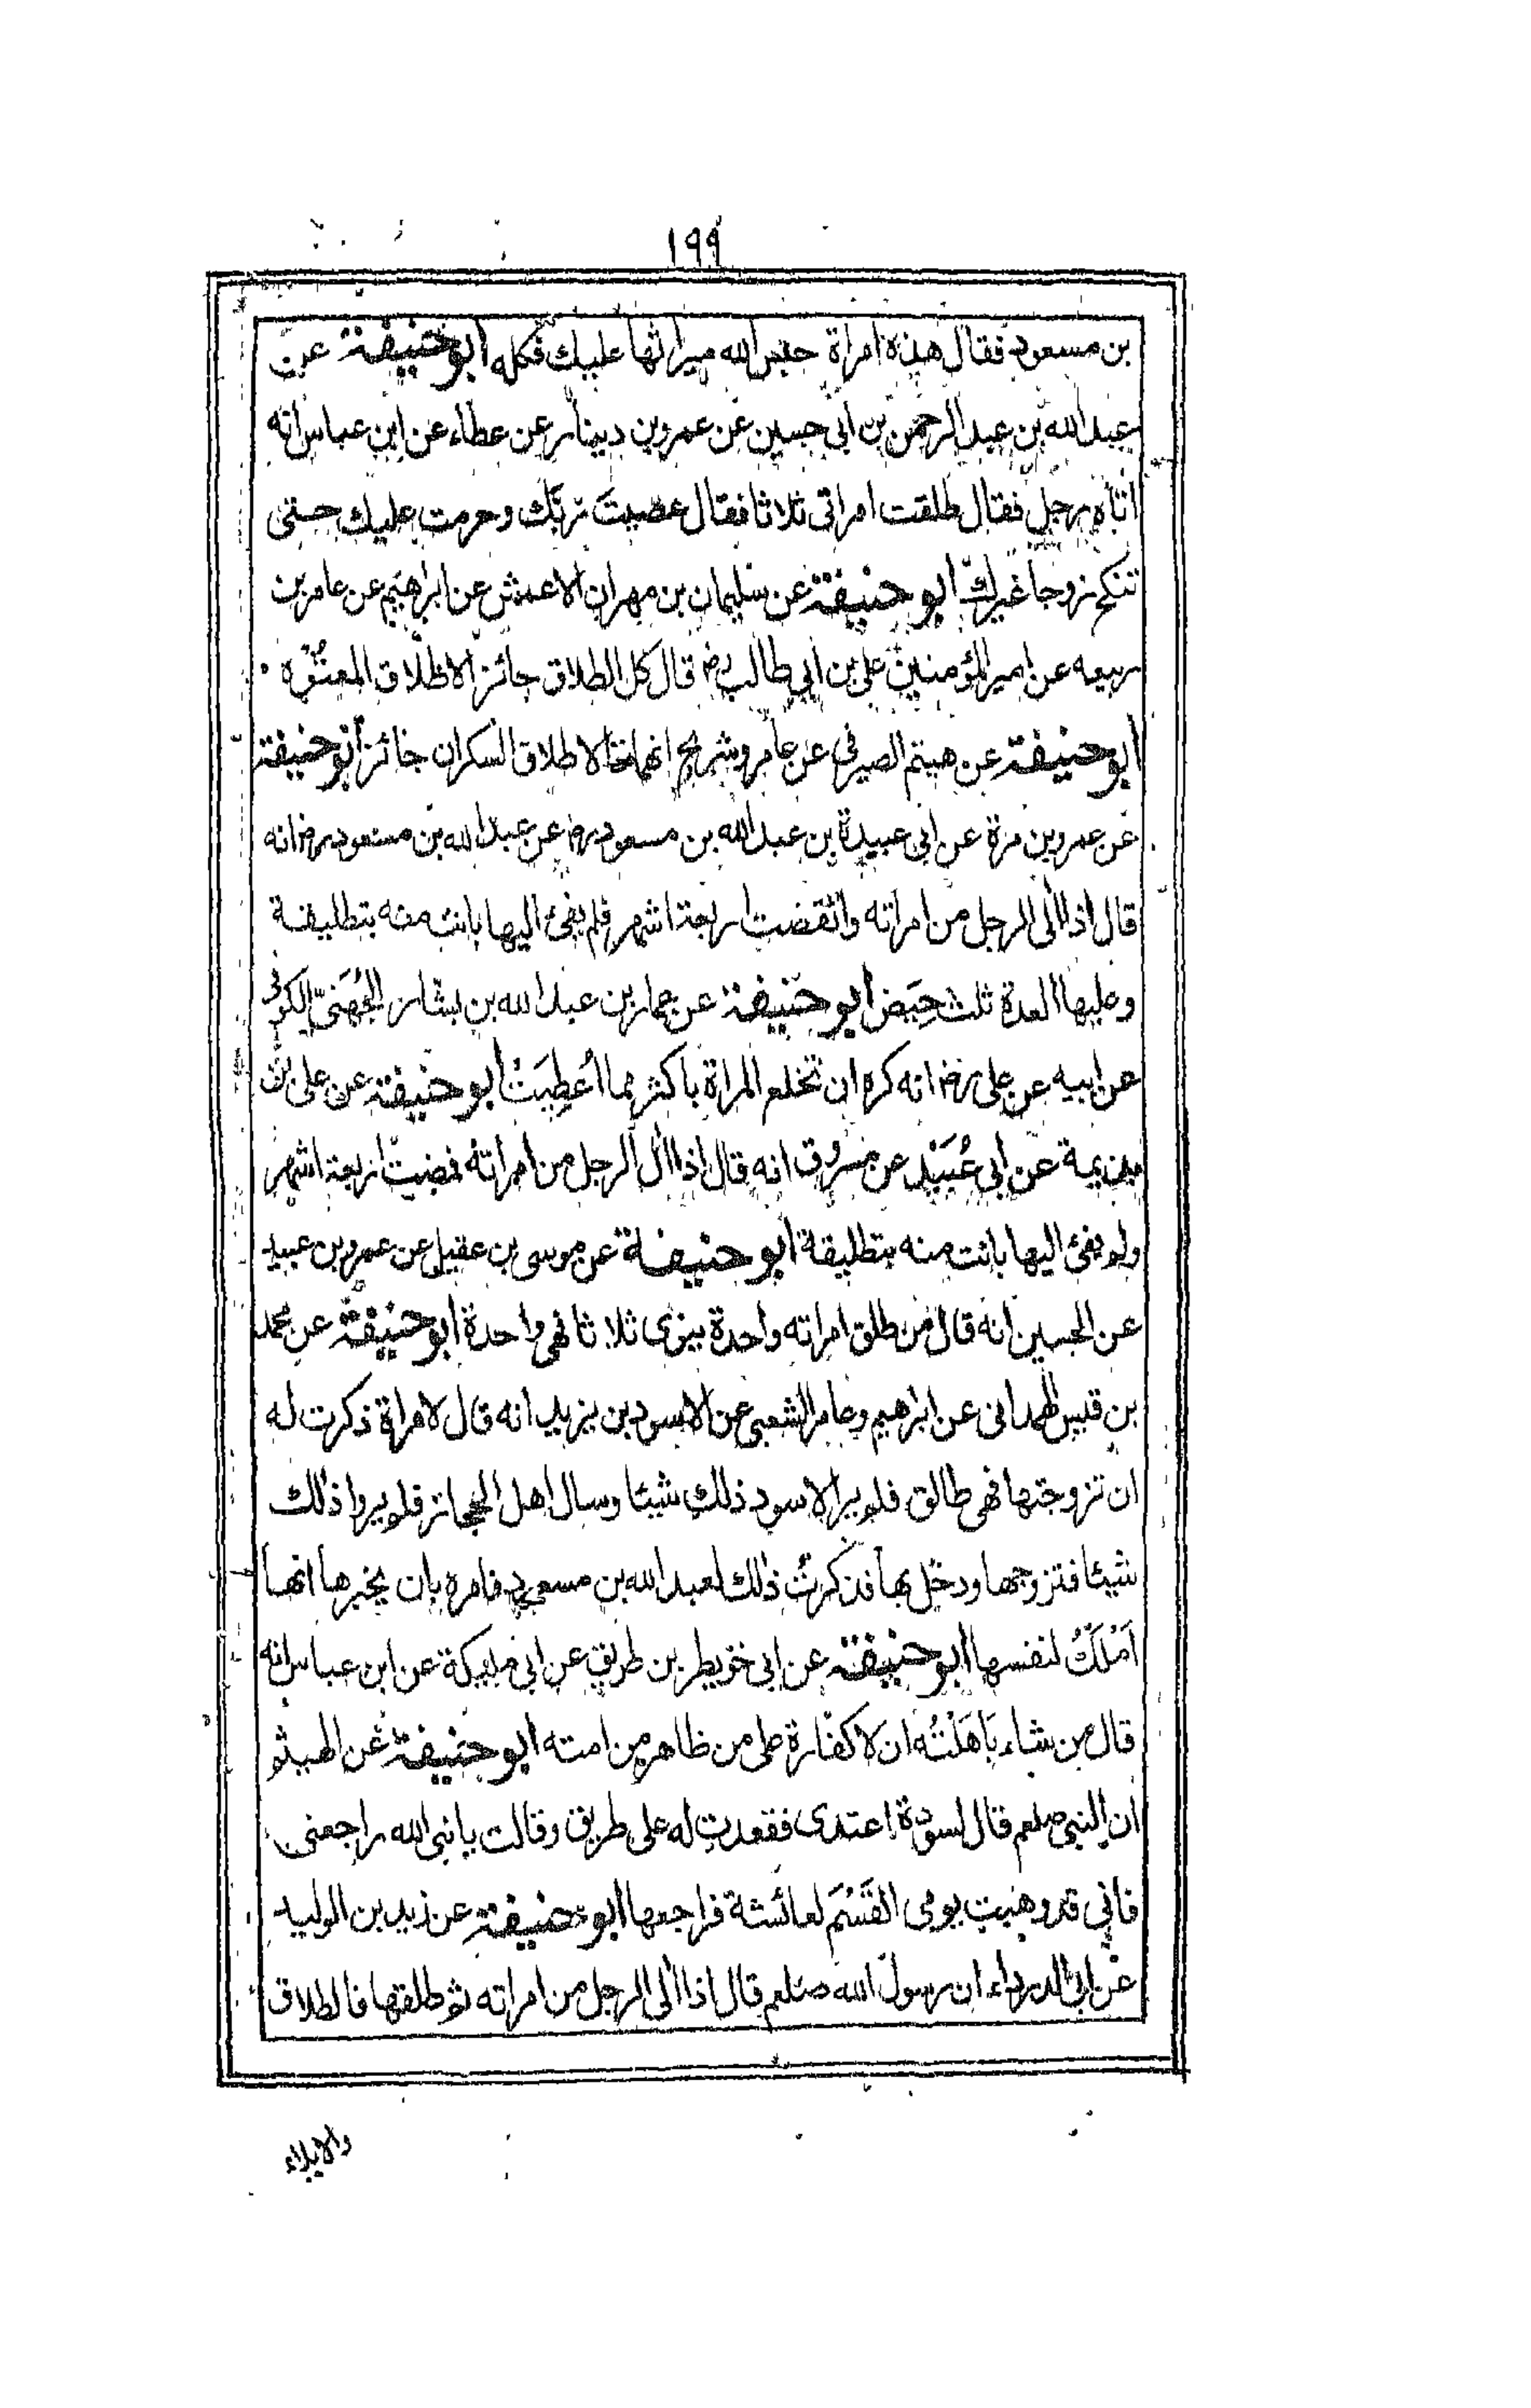 ١٩٩
بن مسعود فقال هذه امراة حبس الله ميراثها عليك فكله ابو حنيفة عن
عبد الله بن عبد الرحمن بن ابى حسين عن عمرو بن دينار عن عطاء عن ابن عباس انه
اتاه رجل فقال طلقت امراتى ثلاثا فقال عصيتَ ربَّك وحرمت عليك حتى
تنكح زوجا غيرك ابو حنيفة عن سليمان بن مهران الاعمش عن ابراهيم عن عامر بن
ربيعه عن امير المؤمنين على بن ابى طالب رض قال كل الطلاق جائز الا طلاق المعتُوْه
ابو حنيفة عن هيثم الصيرفى عن عامر وشريح انهما قالا طلاق السكران جائز ابو حنيفة
عن عمرو بن مرة عن ابى عبيدة بن عبد الله بن مسعود رض عن عبد الله بن مسعود رض انه
قال اذا الى الرجل من امراته وانقضت اربعة اشهر فلم يفئ اليها بانت منه بتطليقة
وعليها العدة ثلث حِيَض ابو حنيفة عن عمار بن عبد الله بن بشار الجُهَنىّ الكوفى
عن ابيه عن على رض انه كره ان تخلع المراة باكثر مما اُعطِيَتْ ابو حنيفة عن على بن
بذيمة عن ابى عُبَيْد عن مسروق انه قال اذا الى الرجل من امراته فمضيت اربعة اشهر
ولم يفئ اليها بانت منه بتطليقة ابو حنيفة عن موسى بن عقيل عن عمرو بن عبيد
عن الحسين انه قال من طلق امراته واحدة ينوى ثلاثا فهى واحدة ابو حنيفة عن محمد
بن قيس الهمدانى عن ابراهيم وعامر الشعبى عن الاسود بن يزيد انه قال لامراة ذكرت له
ان تزوجتها فهى طالق فلم ير الاسود ذلك شيئا وسال اهل الحجاز فلم يروا ذلك
شيئا فتزوجها ودخل بها فذكرتُ ذلك لعبد الله بن مسعود فامره بان يخبرها انها
اَمْلَكُ لنفسها ابو حنيفة عن ابى خويطر بن طريف عن ابى مليكة عن ابن عباس انه
قال من شاء بَاهَلْتُه ان لا كفارة على من ظاهر من امته ابو حنيفة عن الهيثم
ان النبى صلعم قال لسودة اعتدى فقعدت له على طريق وقالت يا نبى الله راجعنى
فانى قد وهبت يومى القَسْمَ لعائشة فراجعها ابو حنيفة عن زيد بن الوليد
عن ابى الدرداء ان رسول الله صلعم قال اذا الى الرجل من امراته ثم طلقها فالطلاق
والايلاء